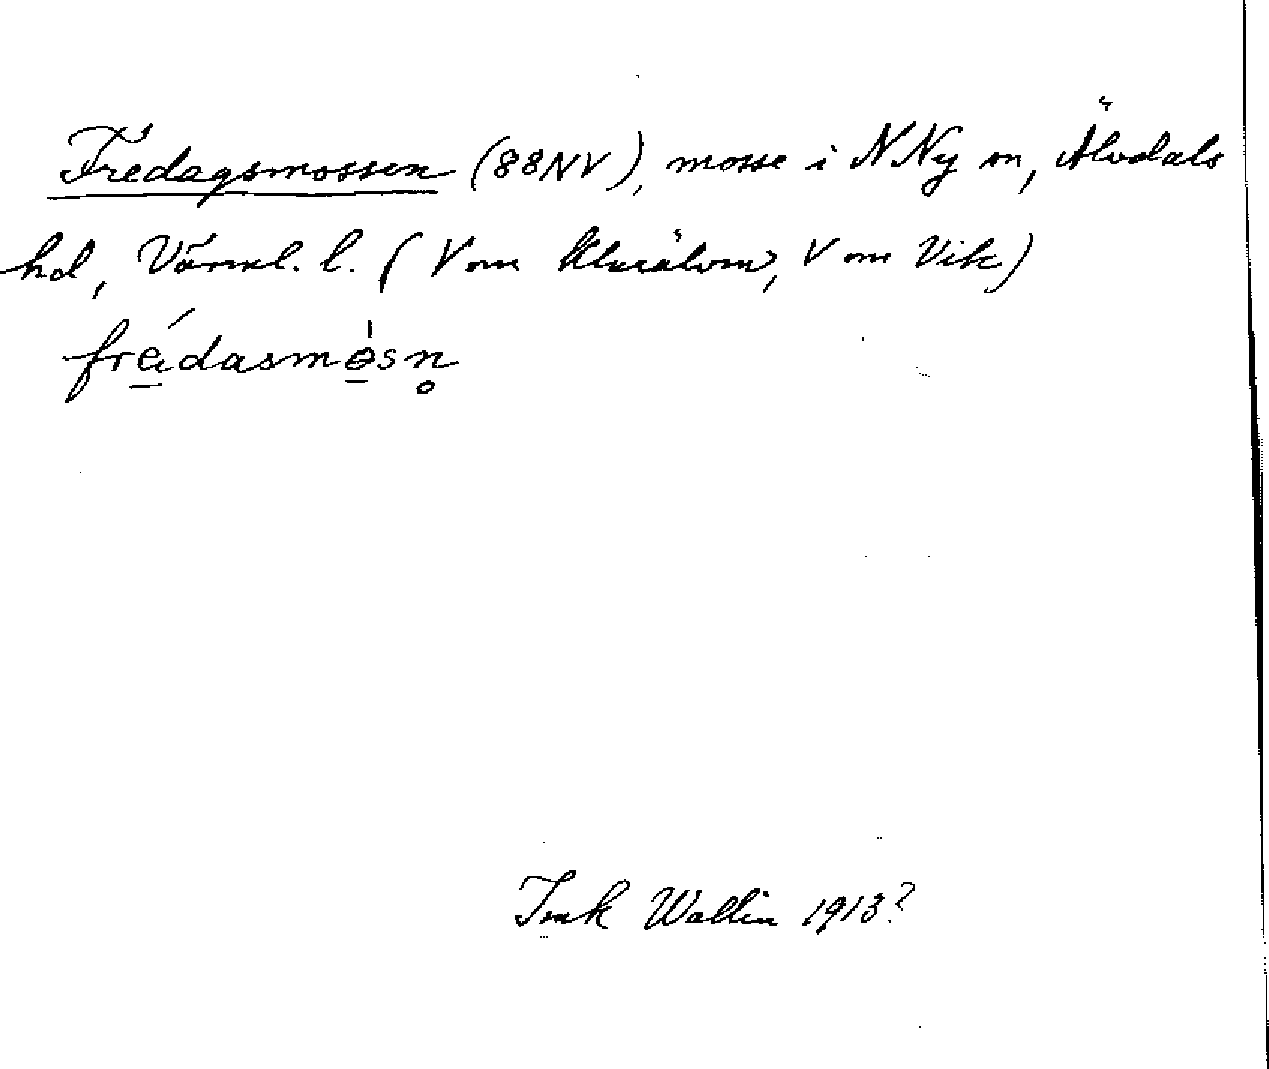 Fredagsmossen (88NV), mosse i N Ny sn, Älvdals
hd, Värml. l. (V om Klarälven, V om Vik)
fre̱i̱dasmɵ̱sn̥
Ink Wallin 1913?